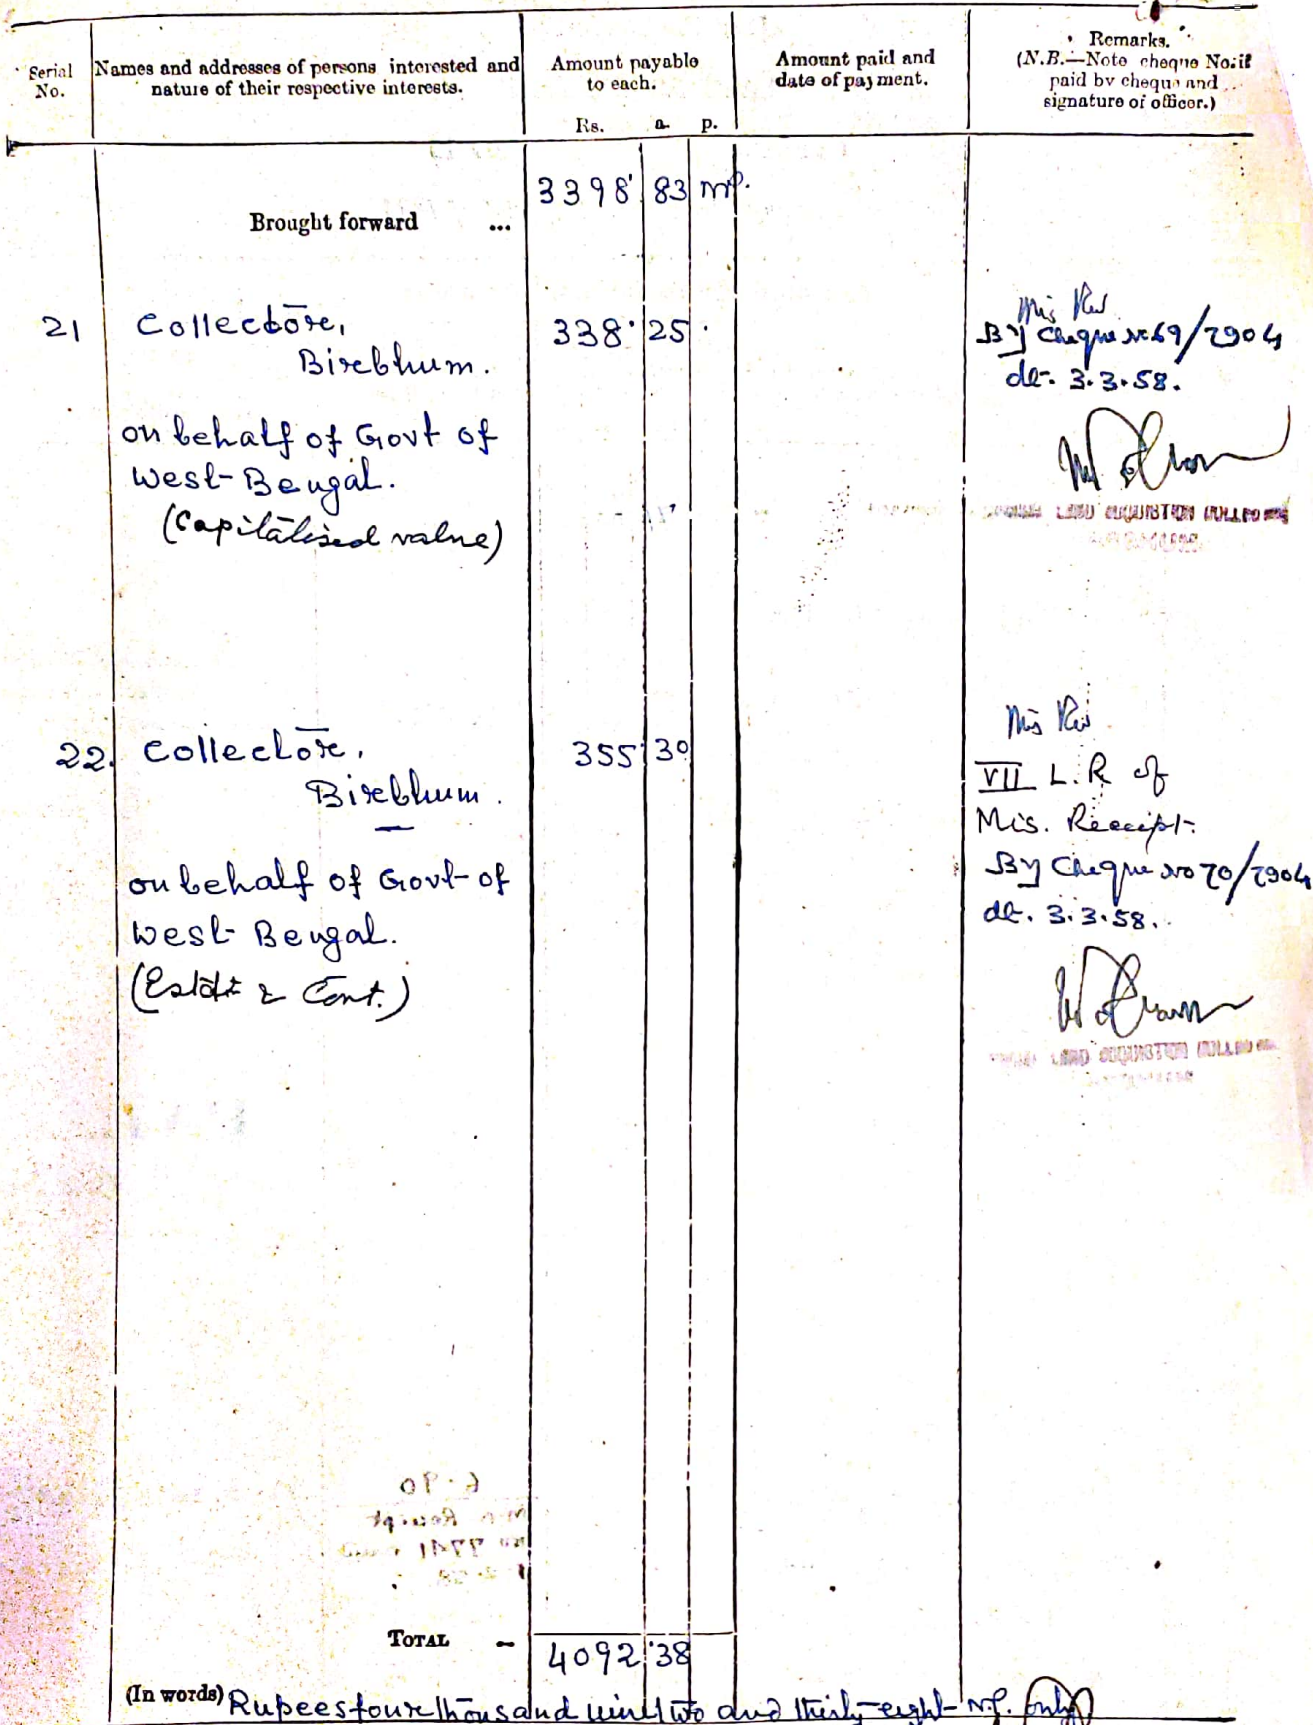 Serial No.
Names and addresses of persons interested and nature of their respective interests.
Amount payable to each.
Rs. a. p.
Amount paid and date of payment.
Remarks.
(N.B.—Note cheque No. if paid by cheque and signature of officer.)
Brought forward ... 3398 83 np.
21 Collector, 338 25
Birbhum.
on behalf of Govt of
West-Bengal.
(Capitalised value)
Mis Rec.
By Cheque no 69/2904
dt. 3.3.58.
22. Collector, 355 30
Birbhum.
on behalf of Govt-of
West-Bengal.
(Estdt & Cont.)
Mis Rec
VII L.R of
Mis. Receipt.
By Cheque no 70/2904
dt. 3.3.58.
TOTAL 4092.38
(In words) Rupees four thousand ninety two and thirty-eight-N.P. only